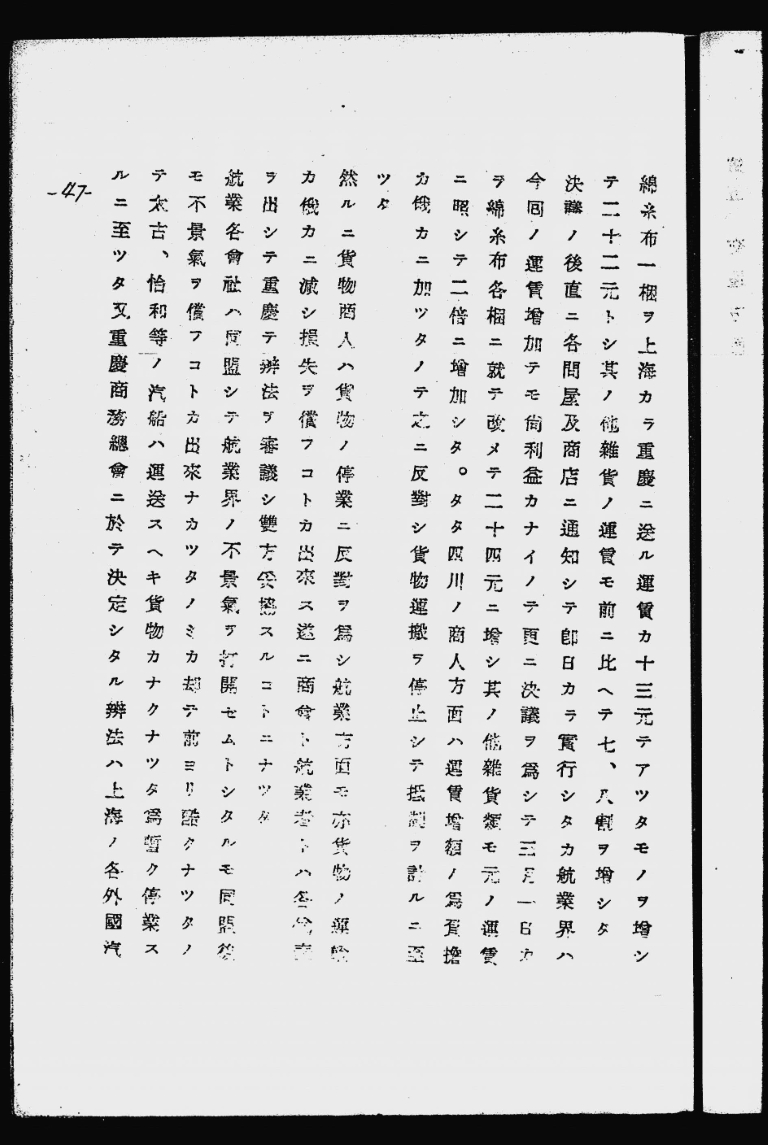 綿糸布一梱ヲ上海カラ重慶ニ送ル運賃カ十三元テアツタモノヲ增シ
テ二十二元トシ其ノ他雜貨ノ運賃モ前ニ比ヘテ七、八割ヲ增シタ
決議ノ後直ニ各問屋及商店ニ通知シテ卽日カラ實行シタカ航業界ハ
今回ノ運賃增加テモ尙利益カナイノテ更ニ決議ヲ爲シテ三月一日カ
ラ綿糸布各梱ニ就テ改メテ二十四元ニ增シ其ノ他雜貨類モ元ノ運賃
ニ照シテ二倍ニ增加シタ。タタ四川ノ商人方面ハ運賃增額ノ爲負擔
カ俄カニ加ツタノテ之ニ反對シ貨物運搬ヲ停止シテ抵制ヲ計ルニ至
ツタ
然ルニ貨物商人ハ貨物ノ停業ニ反對ヲ爲シ航業方面モ亦貨物ノ運輸
カ俄カニ減シ損失ヲ償フコトカ出來ス遂ニ商會ト航業者トハ各代表
ヲ出シテ重慶テ辨法ヲ審議シ雙方妥協スルコトニナツタ
航業各會社ハ同盟シテ航業界ノ不景氣ヲ打開セムトシタルモ同盟後
モ不景氣ヲ償フコトカ出來ナカツタノミカ却テ前ヨリ酷クナツタノ
テ太古、怡和等ノ汽船ハ運送スヘキ貨物カナクナツタ爲暫ク停業ス
ルニ至ツタ又重慶商務總會ニ於テ決定シタル辨法ハ上海ノ各外國汽
-47-